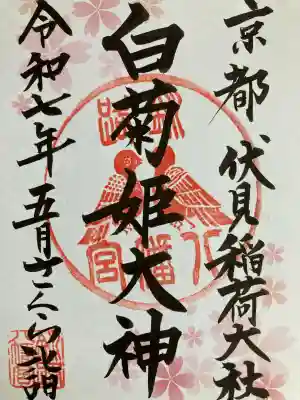 京都 伏見稲荷大社
白菊姫大神
令和七年五月 日詣
八幡宮